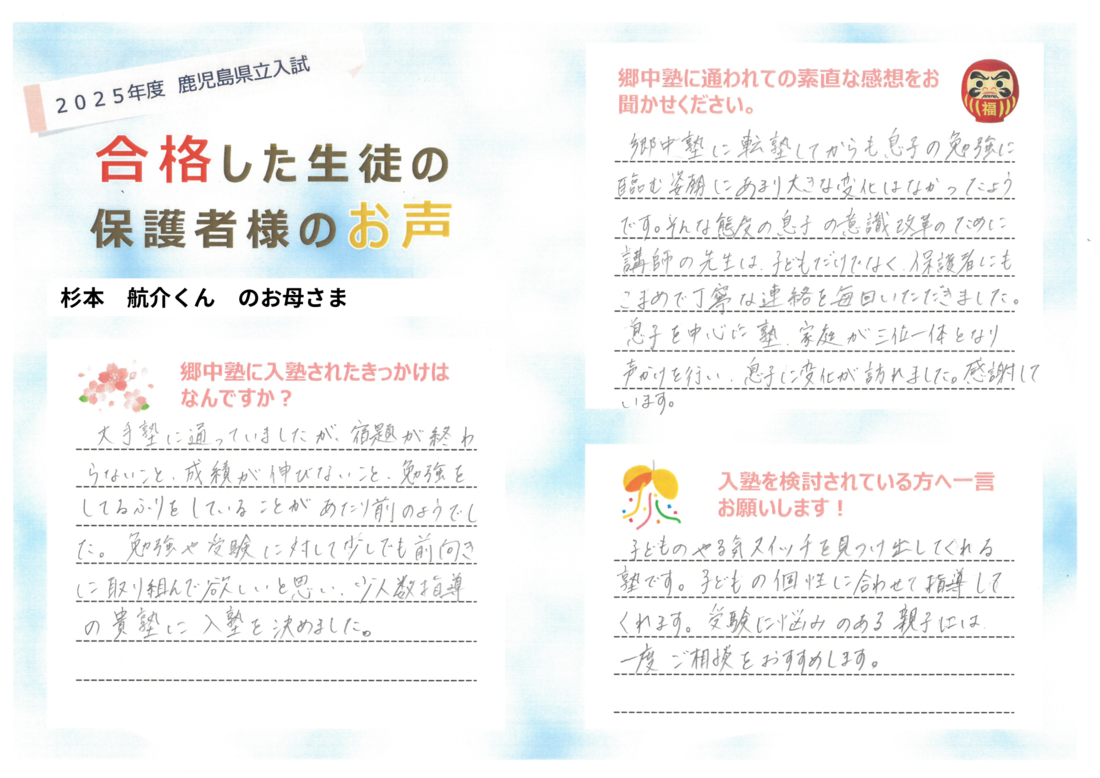 2025年度 鹿児島県立入試
合格した生徒の
保護者様のお声
杉本 航介くん のお母さま
郷中塾に入塾されたきっかけは
なんですか？
大手塾に通っていましたが、宿題が終わ
らないこと、成績が伸びないこと、勉強を
してるふりをしていることがあたり前のようでし
た。勉強や受験に対して少しでも前向き
に取り組んで欲しいと思い、少人数指導
の貴塾に入塾を決めました。
郷中塾に通われての素直な感想をお
聞かせください。
福
郷中塾に転塾してからも息子の勉強に
臨む姿勢にあまり大きな変化はなかったよう
です。そんな態度の息子の意識改革のために
講師の先生は、子どもだけでなく、保護者にも
こまめで丁寧な連絡を毎回いただきました。
息子を中心に塾、家庭が三位一体となり
声かけを行い、息子に変化が訪れました。感謝して
います。
入塾を検討されている方へ一言
お願いします！
子どものやる気スイッチを見つけ出してくれる
塾です。子どもの個性に合わせて指導して
くれます。受験に悩みのある親子には、
一度ご相談をおすすめします。